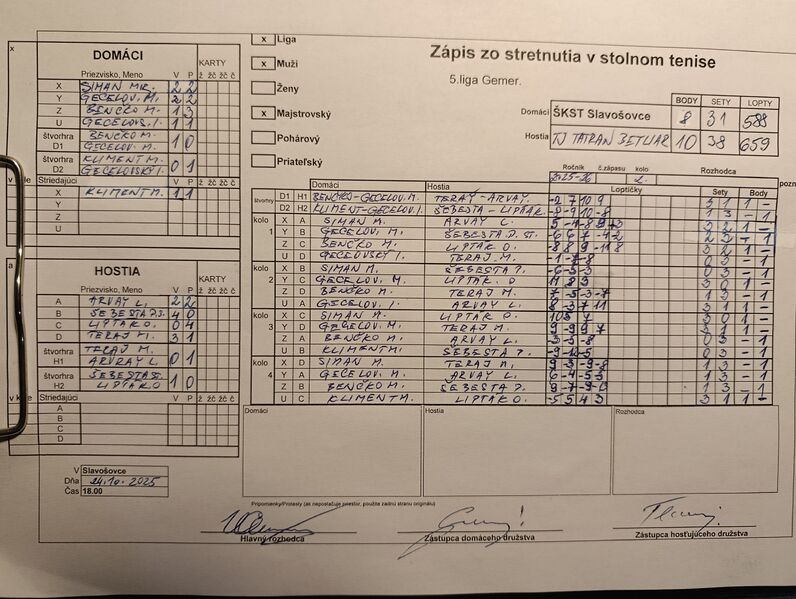 Zápis zo stretnutia v stolnom tenise
5.liga Gemer.
x Liga
x Muži
Ženy
x Majstrovský
Pohárový
Priateľský
BODY SETY LOPTY
Domáci ŠKST Slavošovce 8 31 588
Hostia TJ TATRAN BETLIAR 10 38 659
Ročník č.zápasu kolo Rozhodca
2025-26 2.
DOMÁCI
KARTY
Priezvisko, Meno V P ž žč žč č
X SIMAN MIR. 2 2
Y GECELOV. M. 2 2
Z BENČKO M. 1 3
U GECELOVS. I. 1 1
štvorhra D1 BENČKO M. GECELOV. M. 1 0
štvorhra D2 KLIMENT M. GECELOVSKÝ I. 0 1
Striedajúci V P ž žč žč č
X KLIMENT M. 1 1
Y
Z
U
HOSTIA
KARTY
Priezvisko, Meno V P ž žč žč č
A ARVAY L. 2 2
B ŠEBESTA P.S. 4 0
C LIPTÁK O. 0 4
D TERAJ M. 3 1
štvorhra H1 TERAJ M. ARVAY L. 0 1
štvorhra H2 ŠEBESTA ST. LIPTÁK O 1 0
Striedajúci V P ž žč žč č
A
B
C
D
Domáci Hostia Loptičky Sety Body
štvorhry D1 H1 BENČKO-GECELOV. M. TERAY-ARVAY. -2 7 10 9 3 1 1 -
D2 H2 KLIMENT-GECELOV. I. ŠEBESTA-LIPTÁK 1 3 - 1
kolo 1 X A SIMAN M. ARVAY L. 3 2 1 -
Y B GECELOV. M. ŠEBESTA P. ST. 2 3 - 1
Z C BENČKO M. LIPTÁK O. -8 8 9 -11 8 3 2 1 -
U D GECELOVSKÝ I. TERAJ M. -1 -7 -8 0 3 - 1
kolo 2 X B SIMAN M. ŠEBESTA P. -6 -5 -3 0 3 - 1
Y C GECELOV. M. LIPTÁK O 11 8 3 3 0 1 -
Z D BENČKO M. TERAJ M. 7 -5 -3 -7 1 3 - 1
U A GECELOV. I. ARVAY L. 8 -3 7 11 3 1 1 -
kolo 3 X C SIMAN M. LIPTÁK O. 10 5 4 3 0 1 -
Y D GECELOV. M. TERAJ M. -9 9 7 3 1 1 -
Z A BENČKO M. ARVAY L. -3 -5 -8 0 3 - 1
U B KLIMENT M. ŠEBESTA P. -9 -12 -5 0 3 - 1
kolo 4 X D SIMAN M. TERAJ M. 9 -3 -9 -8 1 3 - 1
Y A GECELOV. M. ARVAY L. 1 3 - 1
Z B BENČKO M. ŠEBESTA P. 1 3 - 1
U C KLIMENT M. LIPTÁK O. -5 5 4 3 3 1 1 -
Domáci Hostia Rozhodca
V Slavošovce
Dňa 24.10. 2025
Čas 18.00
Pripomienky/Protesty (ak nepostačuje priestor, použite zadnú stranu originálu)
Hlavný rozhodca
Zástupca domáceho družstva
Zástupca hosťujúceho družstva